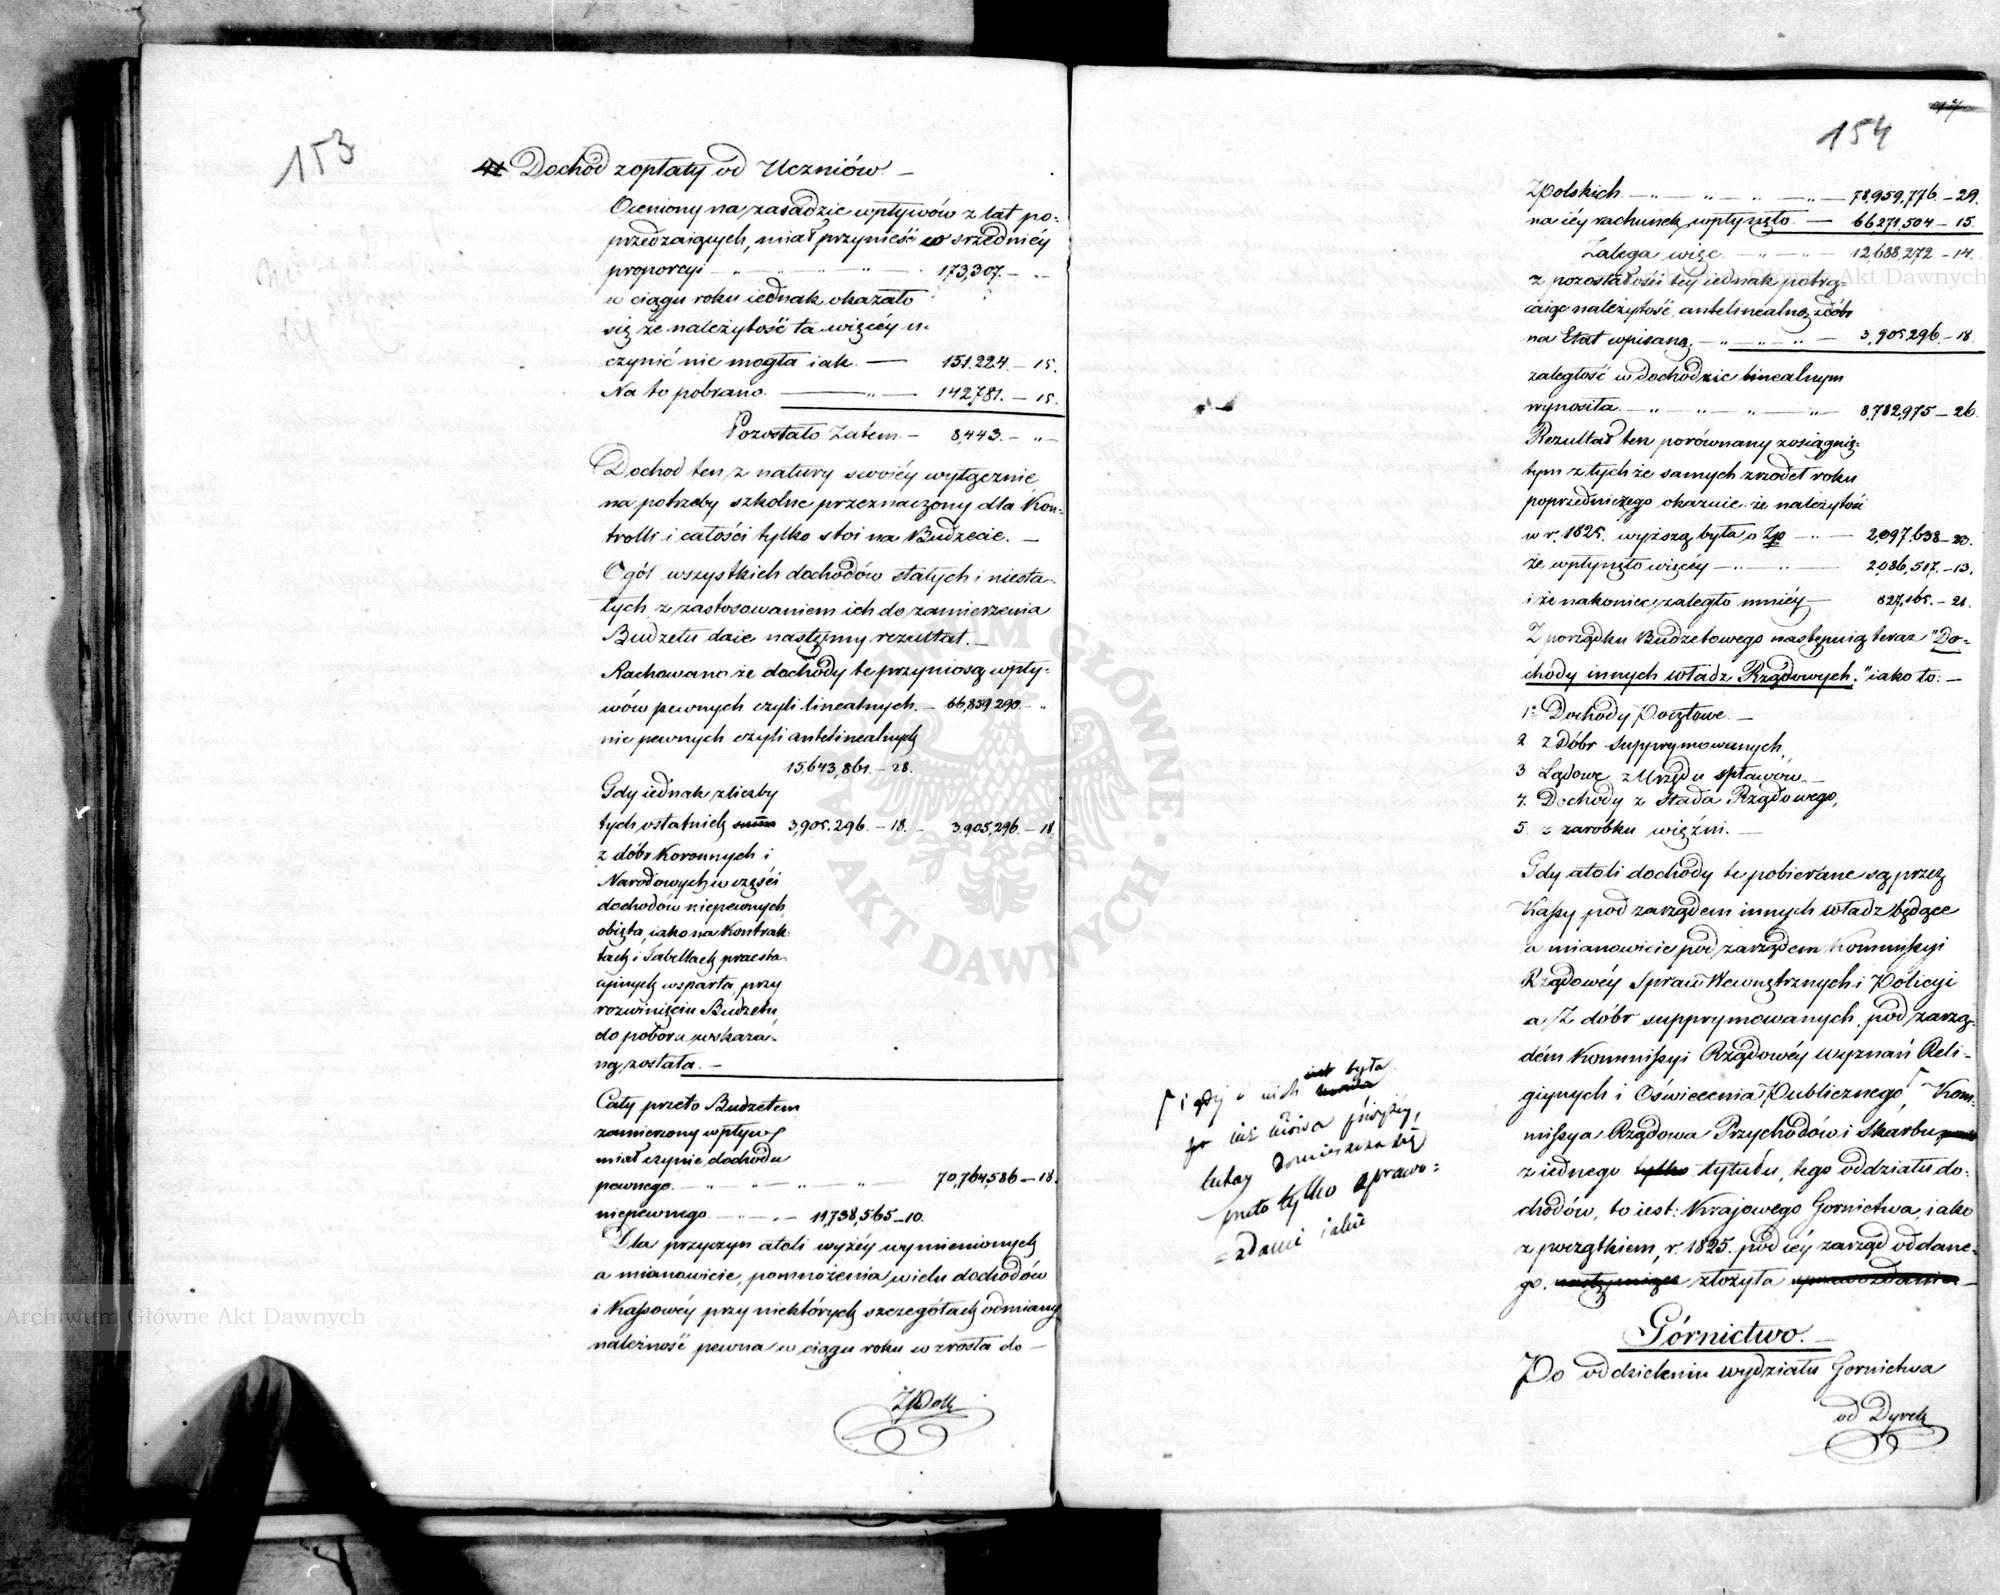 153
41 Dochód z opłaty od Uczniów. —
Oceniony na zasadzie wpływów z lat po-
przedzaiących, miał przynieść w srzedniéy
proporcyi — „ — „ — „ — 173,307. — „
w ciągu roku iednak okazało
się że należytość ta więcéy u-
czynić nie mogła iak. — 151.224. — 15.
Na to pobrano. — „ — 142,781. — 15.
Pozostało zatem. — 8,443. — „ —
Dochod ten z natury swoiéy wyłącznie
na potrzeby szkolne przeznaczony dla Kon-
trolli i całości tylko stoi na Budżecie. —
Ogół wszystkich dochodów stałych i niesta-
łych, z zastosowaniem ich do zamierzenia
Budżetu daie następny rezultat. —
Rachowano że dochody te przyniosą wpły-
wów pewnych czyli linealnych. — 66,859.290. — „
nie pewnych czyli antelinealnych
15,643,861. — 28.
Gdy iednak z liczby
tych ostatnich summa 3,905.296. — 18. — 3.905,296. — 18.
z dóbr Koronnych i
Narodowych w części
dochodów niepewnych,
obięta, iako na Kontrak-
tach i Tabellach praesta-
cyinych wsparta, przy
rozwinięciu Budżetu
do poboru wskaza-
ną została. —
Cały przeto Budżetem
zamierzony wpływ
miał czynić, dochodu
pewnego. — „ — „ — „ — 70,764,586 — 18.
niepewnego. — „ — „ — 11,738,565 — 10.
Dla przyczyn atoli wyżéy wymienionych
a mianowicie, pomnożenia wielu dochodów
i Kassowéy przy niektórych szczegółach odmiany
należność pewna w ciągu roku wzrosła do —
ZPols
154
ZPolskich — „ — „ — „ — „ — 78,959,776. — 29.
na iéy rachunek wpłynęło. — 66,271,504 — 15.
Zalega więc. — „ — „ — 12,688,272 — 14.
z pozostałości téy iednak potrą-
caiąc należytość antelinealną z dóbr
na Etat wpisaną. — „ — „ — „ — 3,905,296. — 18.
zaległość w dochodzie linealnym
wynosiła. — „ — „ — „ — „ — 8,782,975 — 26.
Rezultat ten porównany z osiągnię-
tym z tych że samych zrodeł roku
poprzedniczego okazuie że należytość
w r. 1825. wyższą była o Zp — „ — 2,097,638 — 20.
że wpłynęło więcéy — „ — „ — 2,086,517. — 13.
i że nakoniec zaległo mniéy — 827,165. — 21.
Z porządku Budżetowego następuią teraz "Do-
chody innych władz Rządowych." iako to: —
1º Dochody Pocztowe. —
2 z Dóbr supprymowanych,
3 Lądowe z Urzędu spławów. —
4. Dochody z Stada Rządowego,
5. z zarobku więźni. —
Gdy atoli dochody te pobierane są przez
Kassy pod zarządem innych władz będące
a mianowicie pod zarządem Kommissyi
Rządowéy Spraw Wewnętrznych i Policyi
a Z dóbr supprymowanych, pod zarzą-
dém Kommissyi Rządowéy wyznań Reli-
giynych i Oświecenia Publicznego, Kom-
missya Rządowa Przychodów i Skarbu
z iednego tylko tytułu, tego oddziału do-
chodów, to iest: Krajowego Gornictwa, iako
z początkiem r. 1825. pod iéy zarząd oddane-
go, następuiące złożyła sprawozdanie —
Górnictwo. —
Po oddzieleniu wydziału Gornictwa
od Dyrek
i gdy o nich była
iuż mowa powyżéy,
tutay
tylko sprawo=
=zdanie iakie
ARCHIWUM GŁÓWNE · AKT DAWNYCH ·
Archiwum Główne Akt Dawnych
Archiwum Główne Akt Dawnych